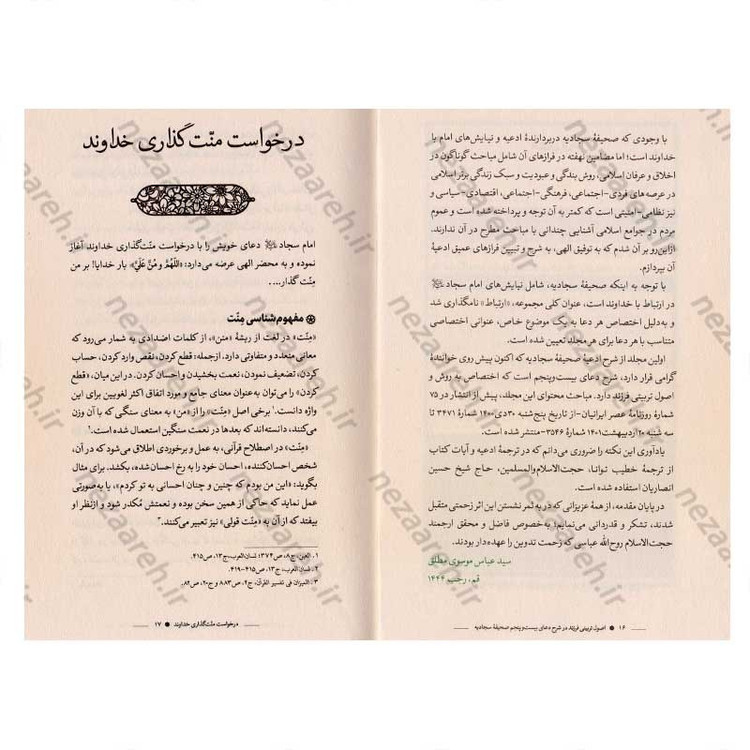 با وجودی که صحیفهٔ سجادیه دربردارندهٔ ادعیه و نیایش‌های امام با
خداوند است؛ اما مضامین نهفته در فرازهای آن شامل مباحث گوناگون در
اخلاق و عرفان اسلامی، روش بندگی و عبودیت و سبک زندگی برتر اسلامی
در عرصه‌های فردی-اجتماعی، فرهنگی-اجتماعی، اقتصادی-سیاسی و
نیز نظامی-امنیتی است که کمتر به آن توجه و پرداخته شده است و عموم
مردم در جوامع اسلامی آشنایی چندانی با مباحث مطرح در آن ندارند.
ازاین‌رو بر آن شدم که به توفیق الهی، به شرح و تبیین فرازهای عمیق ادعیهٔ
آن بپردازم.
با توجه به اینکه صحیفهٔ سجادیه، شامل نیایش‌های امام سجاد
در ارتباط با خداوند است، عنوان کلی مجموعه، «ارتباط» نامگذاری شد
و به‌دلیل اختصاص هر دعا به یک موضوع خاص، عنوانی اختصاصی
متناسب با هر دعا برای هر مجلد تعیین شده است.
اولین مجلد از شرح ادعیهٔ صحیفهٔ سجادیه که اکنون پیش روی خوانندهٔ
گرامی قرار دارد، شرح دعای بیست‌وپنجم است که اختصاص به روش و
اصول تربیتی فرزند دارد. مباحث محتوای این مجلد، پیش از انتشار در ۷۵
شمارهٔ روزنامهٔ عصر ایرانیان-از تاریخ پنج‌شنبه ۳۰ دی ۱۴۰۰ شمارهٔ ۳۴۷۱ تا
سه شنبه ۲۰ اردیبهشت ۱۴۰۱ شمارهٔ ۳۵۴۶-منتشر شده است.
یادآوری این نکته را ضروری می‌دانم که در ترجمهٔ ادعیه و آیات کتاب
از ترجمهٔ خطیب توانا، حجت‌الاسلام‌والمسلمین، حاج شیخ حسین
انصاریان استفاده شده است.
در پایان مقدمه، از همهٔ عزیزانی که در به ثمر نشستن این اثر زحمتی متقبل
شدند، تشکر و قدردانی می‌نمایم؛ به‌خصوص فاضل و محقق ارجمند
حجت‌الاسلام روح‌الله عباسی که زحمت تدوین را عهده‌دار بودند.
سید عباس موسوی مطلق
قم، رجب ۱۴۴۴
۱۶ ● اصول تربیتی فرزند در شرح دعای بیست‌وپنجم صحیفهٔ سجادیه
درخواست منّت‌گذاری خداوند
امام سجاد دعای خویش را با درخواست منّت‌گذاری خداوند آغاز
نموده و به محضر الهی عرضه می‌دارد: «اللَّهُمَّ وَ مُنَّ عَلَيَّ»؛ بار خدایا! بر من
مِنّت گذار....
مفهوم‌شناسی مِنّت
«مِنّت» در لغت از ریشهٔ «منن»، از کلمات اضدادی به شمار می‌رود که
معانی متعدد و متفاوتی دارد. ازجمله: قطع کردن، نقص وارد کردن، حساب
کردن، تضعیف نمودن، نعمت بخشیدن و احسان کردن. در این میان، «قطع
کردن» را می‌توان به‌عنوان معنای جامع و مورد اتفاق اکثر لغویین برای این
واژه دانست.۱ برخی اصل «مِنّت» را از «من» به معنای سنگی که با آن وزن
می‌کنند، دانسته‌اند که بعدها در نعمت سنگین استعمال شده است.۲
«مِنّت» در اصطلاح قرآنی، به عمل و برخوردی اطلاق می‌شود که در آن،
شخص احسان‌کننده، احسان خود را به رخ احسان‌شده، بکشد. برای مثال
بگوید: «این من بودم که چنین و چنان احسانی به تو کردم»، یا به‌صورتی
عمل نماید که حاکی از همین سخن بوده و نعمتش مُکدر شود و ازنظر او
بیفتد که از آن به «مِنّت قولی» نیز تعبیر می‌کنند.۳
۱. العین، ج۸، ص۳۷۴؛ لسان العرب، ج۱۳، ص۴۱۵.
۲. لسان العرب، ج۱۳، ص۴۱۵-۴۱۹.
۳. المیزان فی تفسیر القرآن، ج۴، ص۸۸۳ و ج۲۰، ص۸۲.
درخواست منّت‌گذاری خداوند ● ۱۷
nezaareh.ir